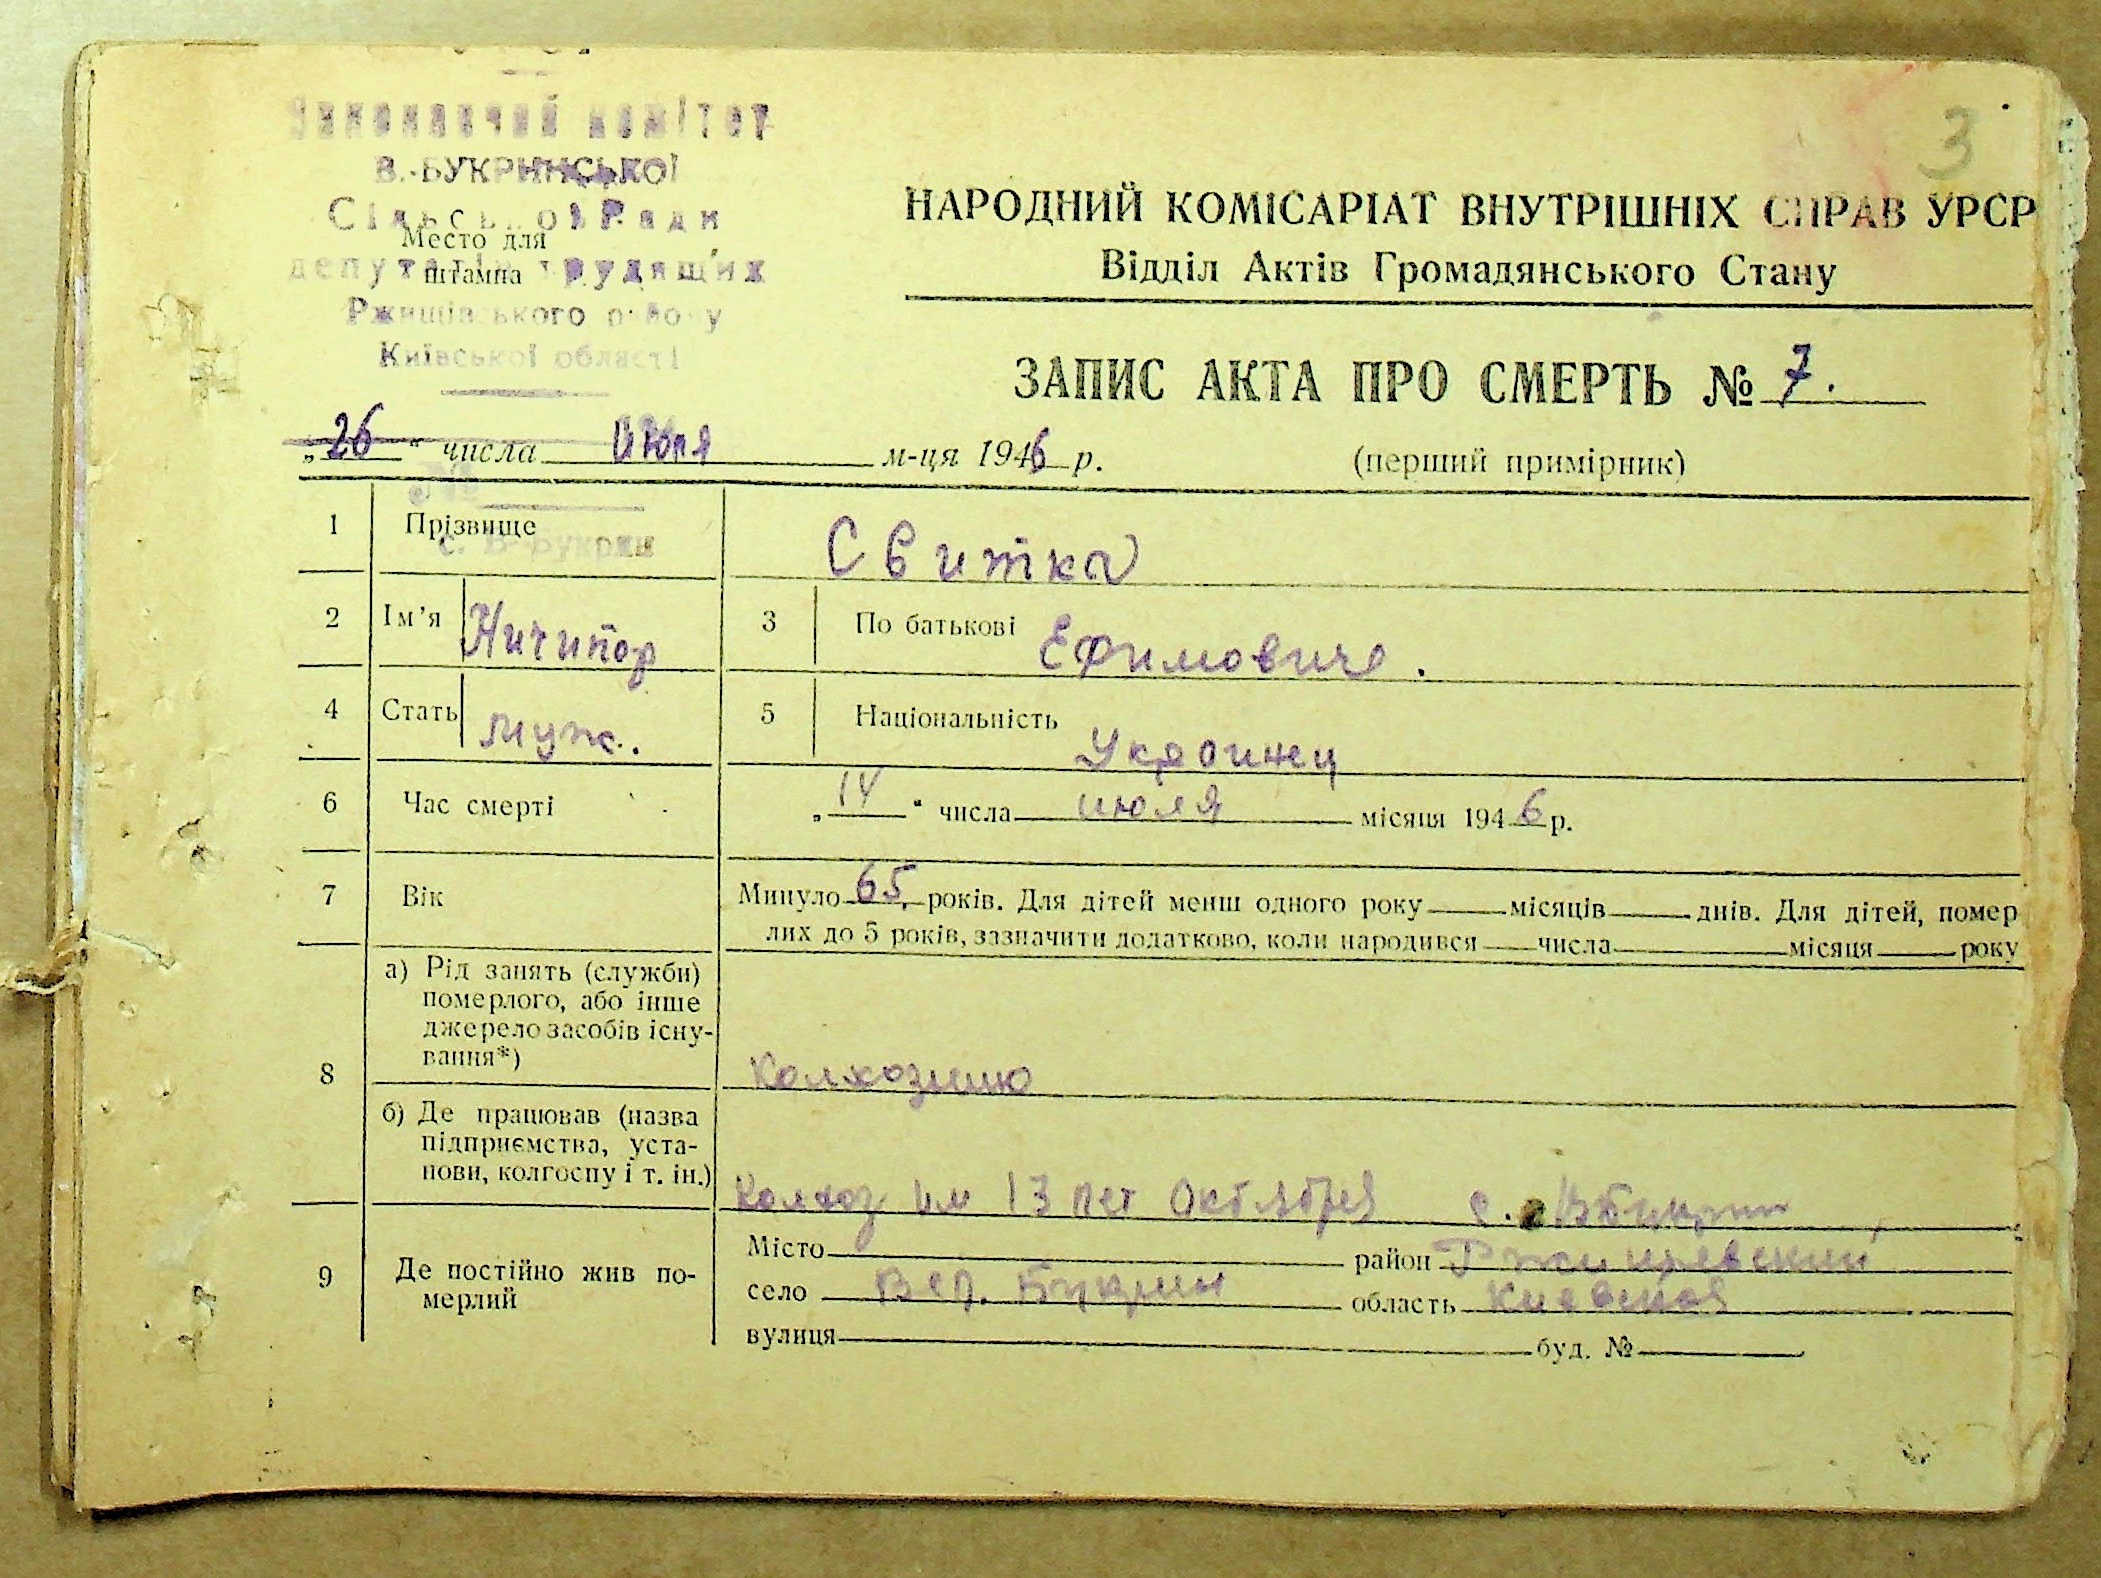 3
Виконавчий комітет
В.-БУКРИНСЬКОЇ
Сільської Ради
депутатів трудящих
Ржищівського району
Київської області
с. В-Букрин
Место для
штампа
НАРОДНИЙ КОМІСАРІАТ ВНУТРІШНІХ СПРАВ УРСР
Відділ Актів Громадянського Стану
ЗАПИС АКТА ПРО СМЕРТЬ № 7.
„26“ числа июля м-ця 1946 р.
(перший примірник)
1 Прізвище Свитка
2 Ім’я Ничипор 3 По батькові Ефимович.
4 Стать муж. 5 Національність Украинец
6 Час смерті „14“ числа июля місяця 1946 р.
7 Вік Минуло 65 років. Для дітей менш одного року місяців днів. Для дітей, помер
лих до 5 років, зазначити додатково, коли народився числа місяця року
8 а) Рід занять (служби)
померлого, або інше
джерело засобів існу-
вання*)
Колхозник
б) Де працював (назва
підприємства, уста-
нови, колгоспу і т. ін.)
Колхоз им 13 лет Октября с. ВБукрин
9 Де постійно жив по-
мерлий
Місто район Ржищевский
село Вел. Букрин область Киевская
вулиця буд. №